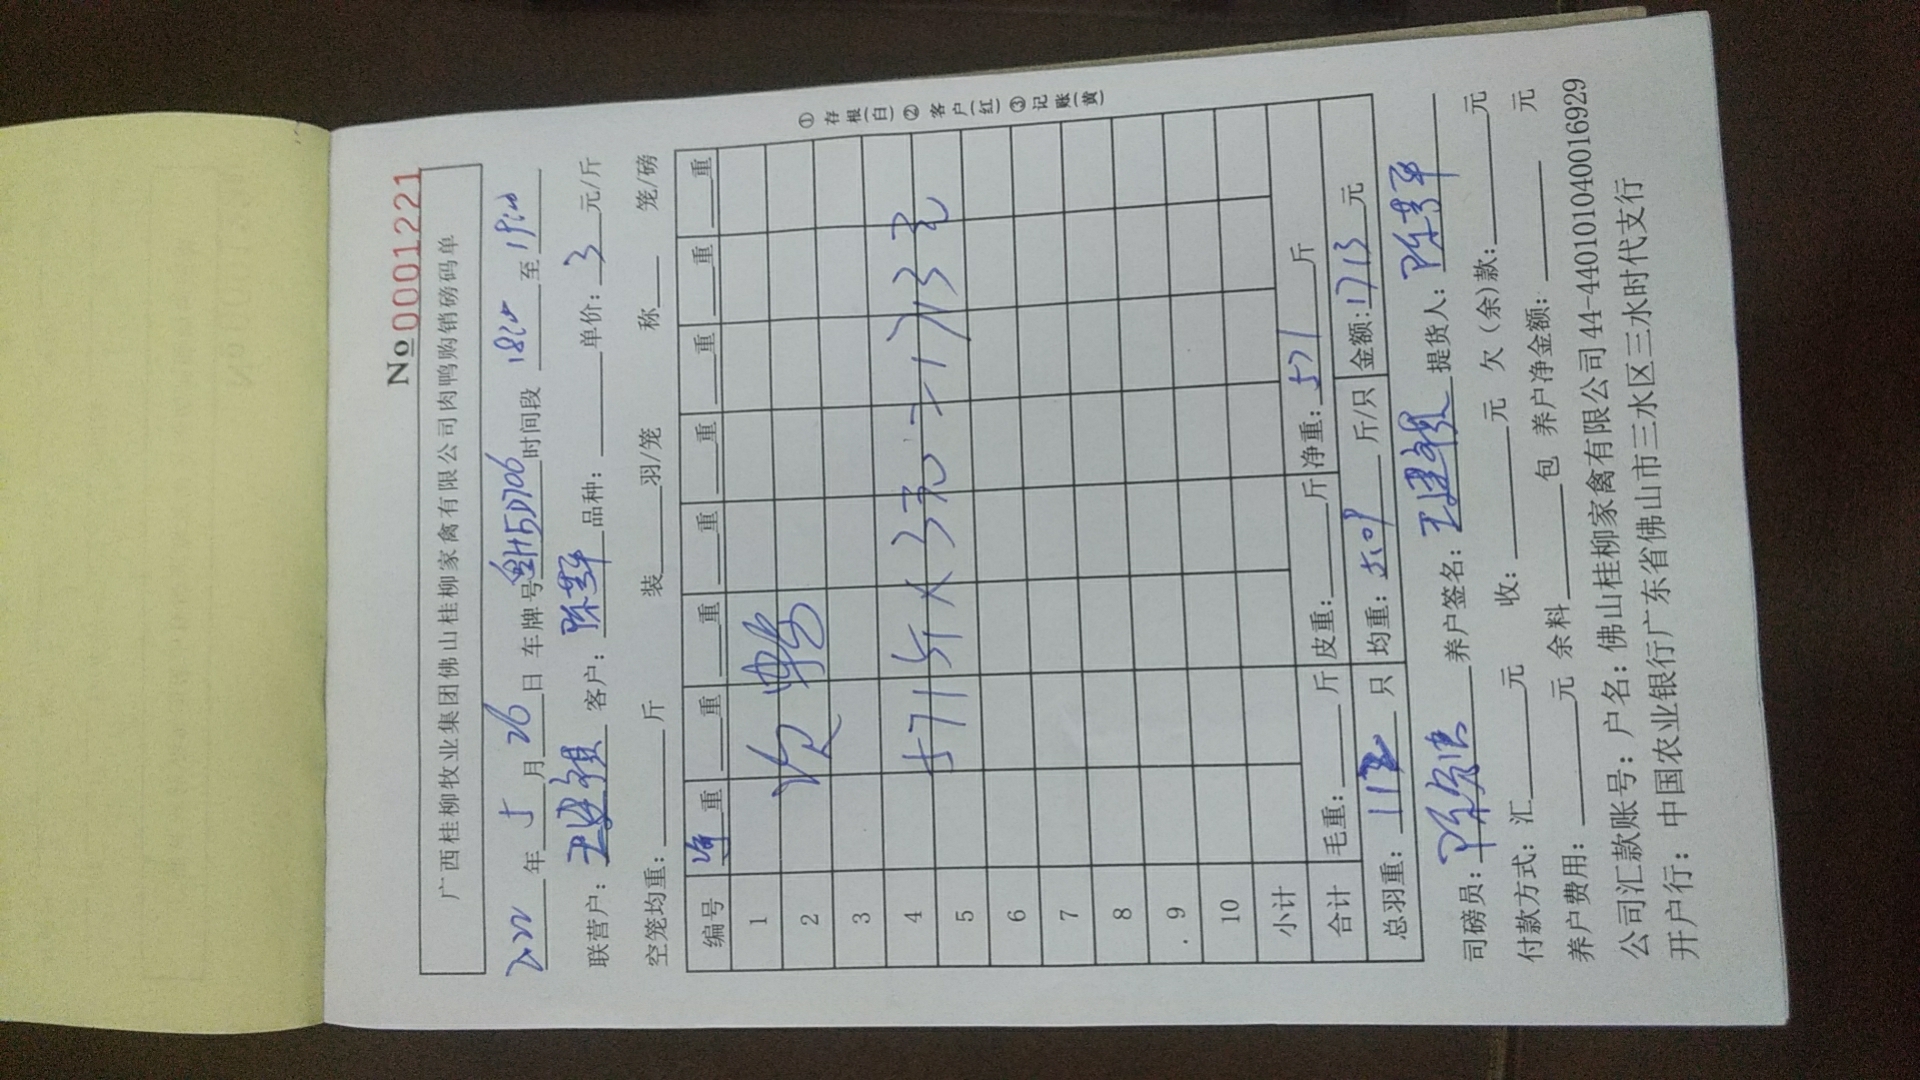 No 00001221
广西桂柳牧业集团佛山桂柳家禽有限公司肉鸭购销磅码单
年 5 月 26 日 车牌号 5D706 时间段 至
联营户: 客户: 品种: 单价: 3 元/斤
空笼均重: 斤 装 羽/笼 称 笼/磅
编号 重 重 重 重 重 重 重 重
1
2 次鸭
3
4
5 571斤×3元=1713元
6
7
8
9
10
小计
合计 毛重: 斤 皮重: 斤 净重: 571 斤
总羽重: 112 只 均重: 5.09 斤/只 金额: 1713 元
司磅员: 养户签名: 提货人:
付款方式: 汇 元 收: 元 欠(余)款: 元
养户费用: 元 余料 包 养户净金额: 元
公司汇款账号: 户名: 佛山桂柳家禽有限公司44-440101040016929
开户行: 中国农业银行广东省佛山市三水区三水时代支行
①存根(白)②客户(红)③记账(黄)